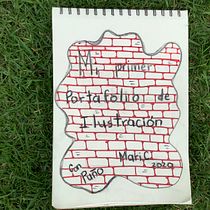 Mi primer
Portafolio de
Ilustración
Mari.C
Con Puño 2020